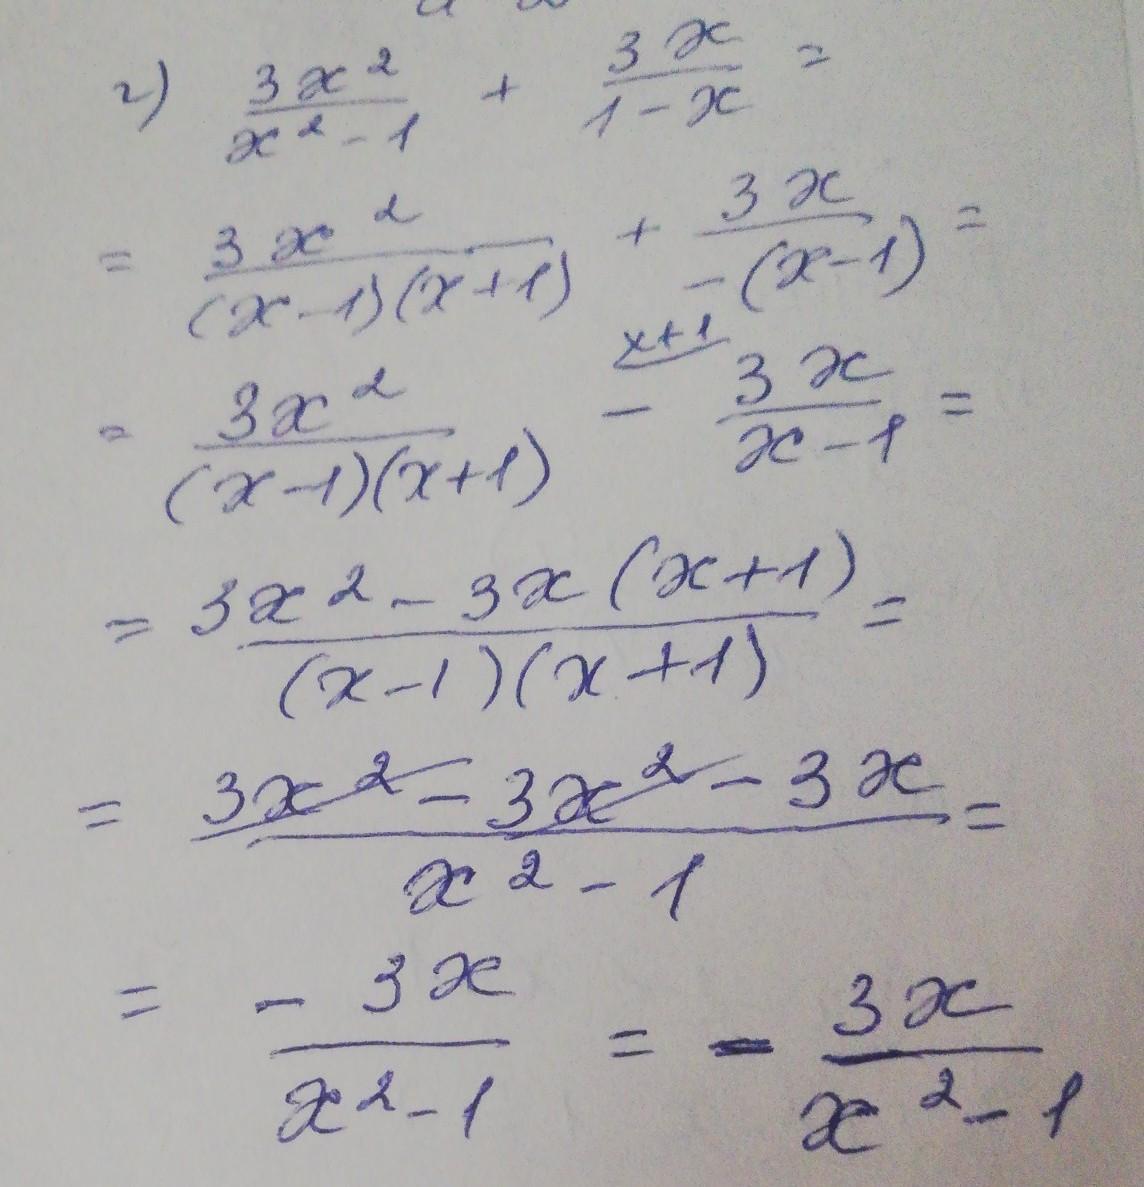 г) 3x²/(x²-1) + 3x/(1-x) =
= 3x²/((x-1)(x+1)) + 3x/(-(x-1)) =
x+1
= 3x²/((x-1)(x+1)) - 3x/(x-1) =
= (3x² - 3x(x+1))/((x-1)(x+1)) =
= (3x² - 3x² - 3x)/(x²-1) =
= (-3x)/(x²-1) = - 3x/(x²-1)